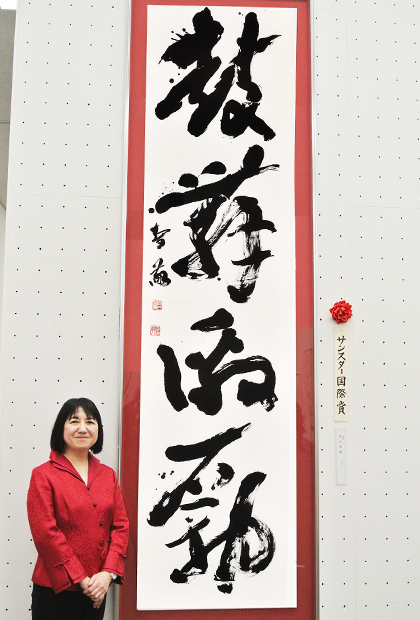 鼓舞激勵
サンスター国際賞